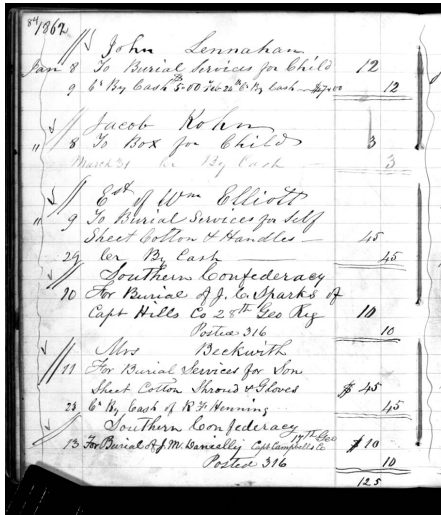 84
1862
John Lennahan
Jan 8 To Burial Services for Child 12
9 Cr By Cash 5.00 Feb 26th Cr By Cash $7.00 12
Jacob Kohn
" 8 To Box for Child 3
March 31 Cr By Cash 3
Est of Wm Elliott
" 9 To Burial Services for Self
Sheet Cotton & Handles 45
29 Cr By Cash 45
Southern Confederacy
10 For Burial of J. C. Sparks of
Capt Hills Co 28th Geo Rig 10
Posted 316 10
Mrs Beckwith
11 For Burial Services for Son
Sheet Cotton Shroud & Gloves $ 45
23 Cr By Cash of R F Henning 45
Southern Confederacy
13 For Burial of J. M. Danielly Capt Campbells Co 17th Geo $ 10
Posted 316 10
125